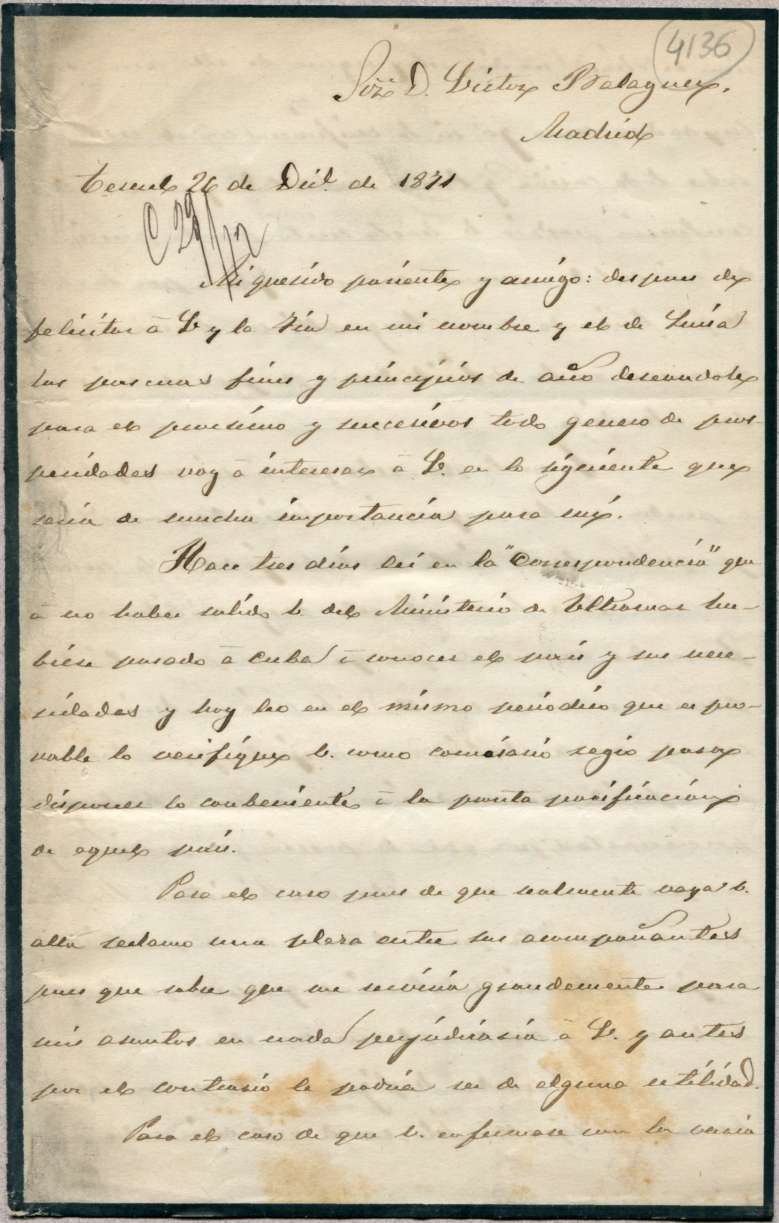 4136
Sor. D. Victor Balaguer.
Madrid
Teruel 26 de Dice. de 1871
C 29/12
Mi querido pariente y amigo: despues de
felicitar á V. y la Tia en mi nombre y el de Luisa
las pascuas fines y principios de año deseandoles
para el procsimo y succesivos todo genero de pros-
peridades voy á interesar á V. en lo siguiente que
seria de mucha importancia para mi.
Hace tres dias lei en la "Correspondencia" que
á no haber salido V. del Ministerio de Ultramar hu-
biese pasado á Cuba á conocer el pais y sus nece-
sidades y hoy leo en el mismo periodico que es pro-
vable lo verifique V. como comisario regio para
disponer lo conbeniente á la pronta pacificacion
de aquel pais.
Para el caso pues de que realmente vaya V.
allá reclamo una plaza entre sus acompañantes
pues que sobre que me serviria grandemente para
mis asuntos en nada perjudicaria á V. y antes
por el contrario le podria ser de alguna utilidad.
Para el caso de que V. enfermase con la